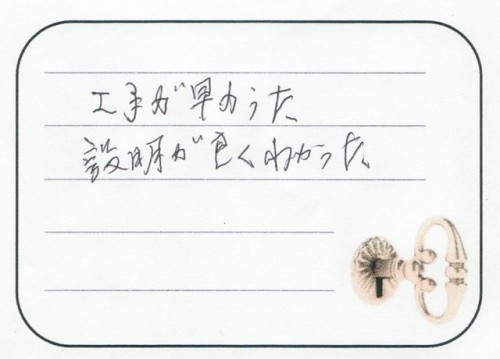 工事が早かった
説明が良くわかった